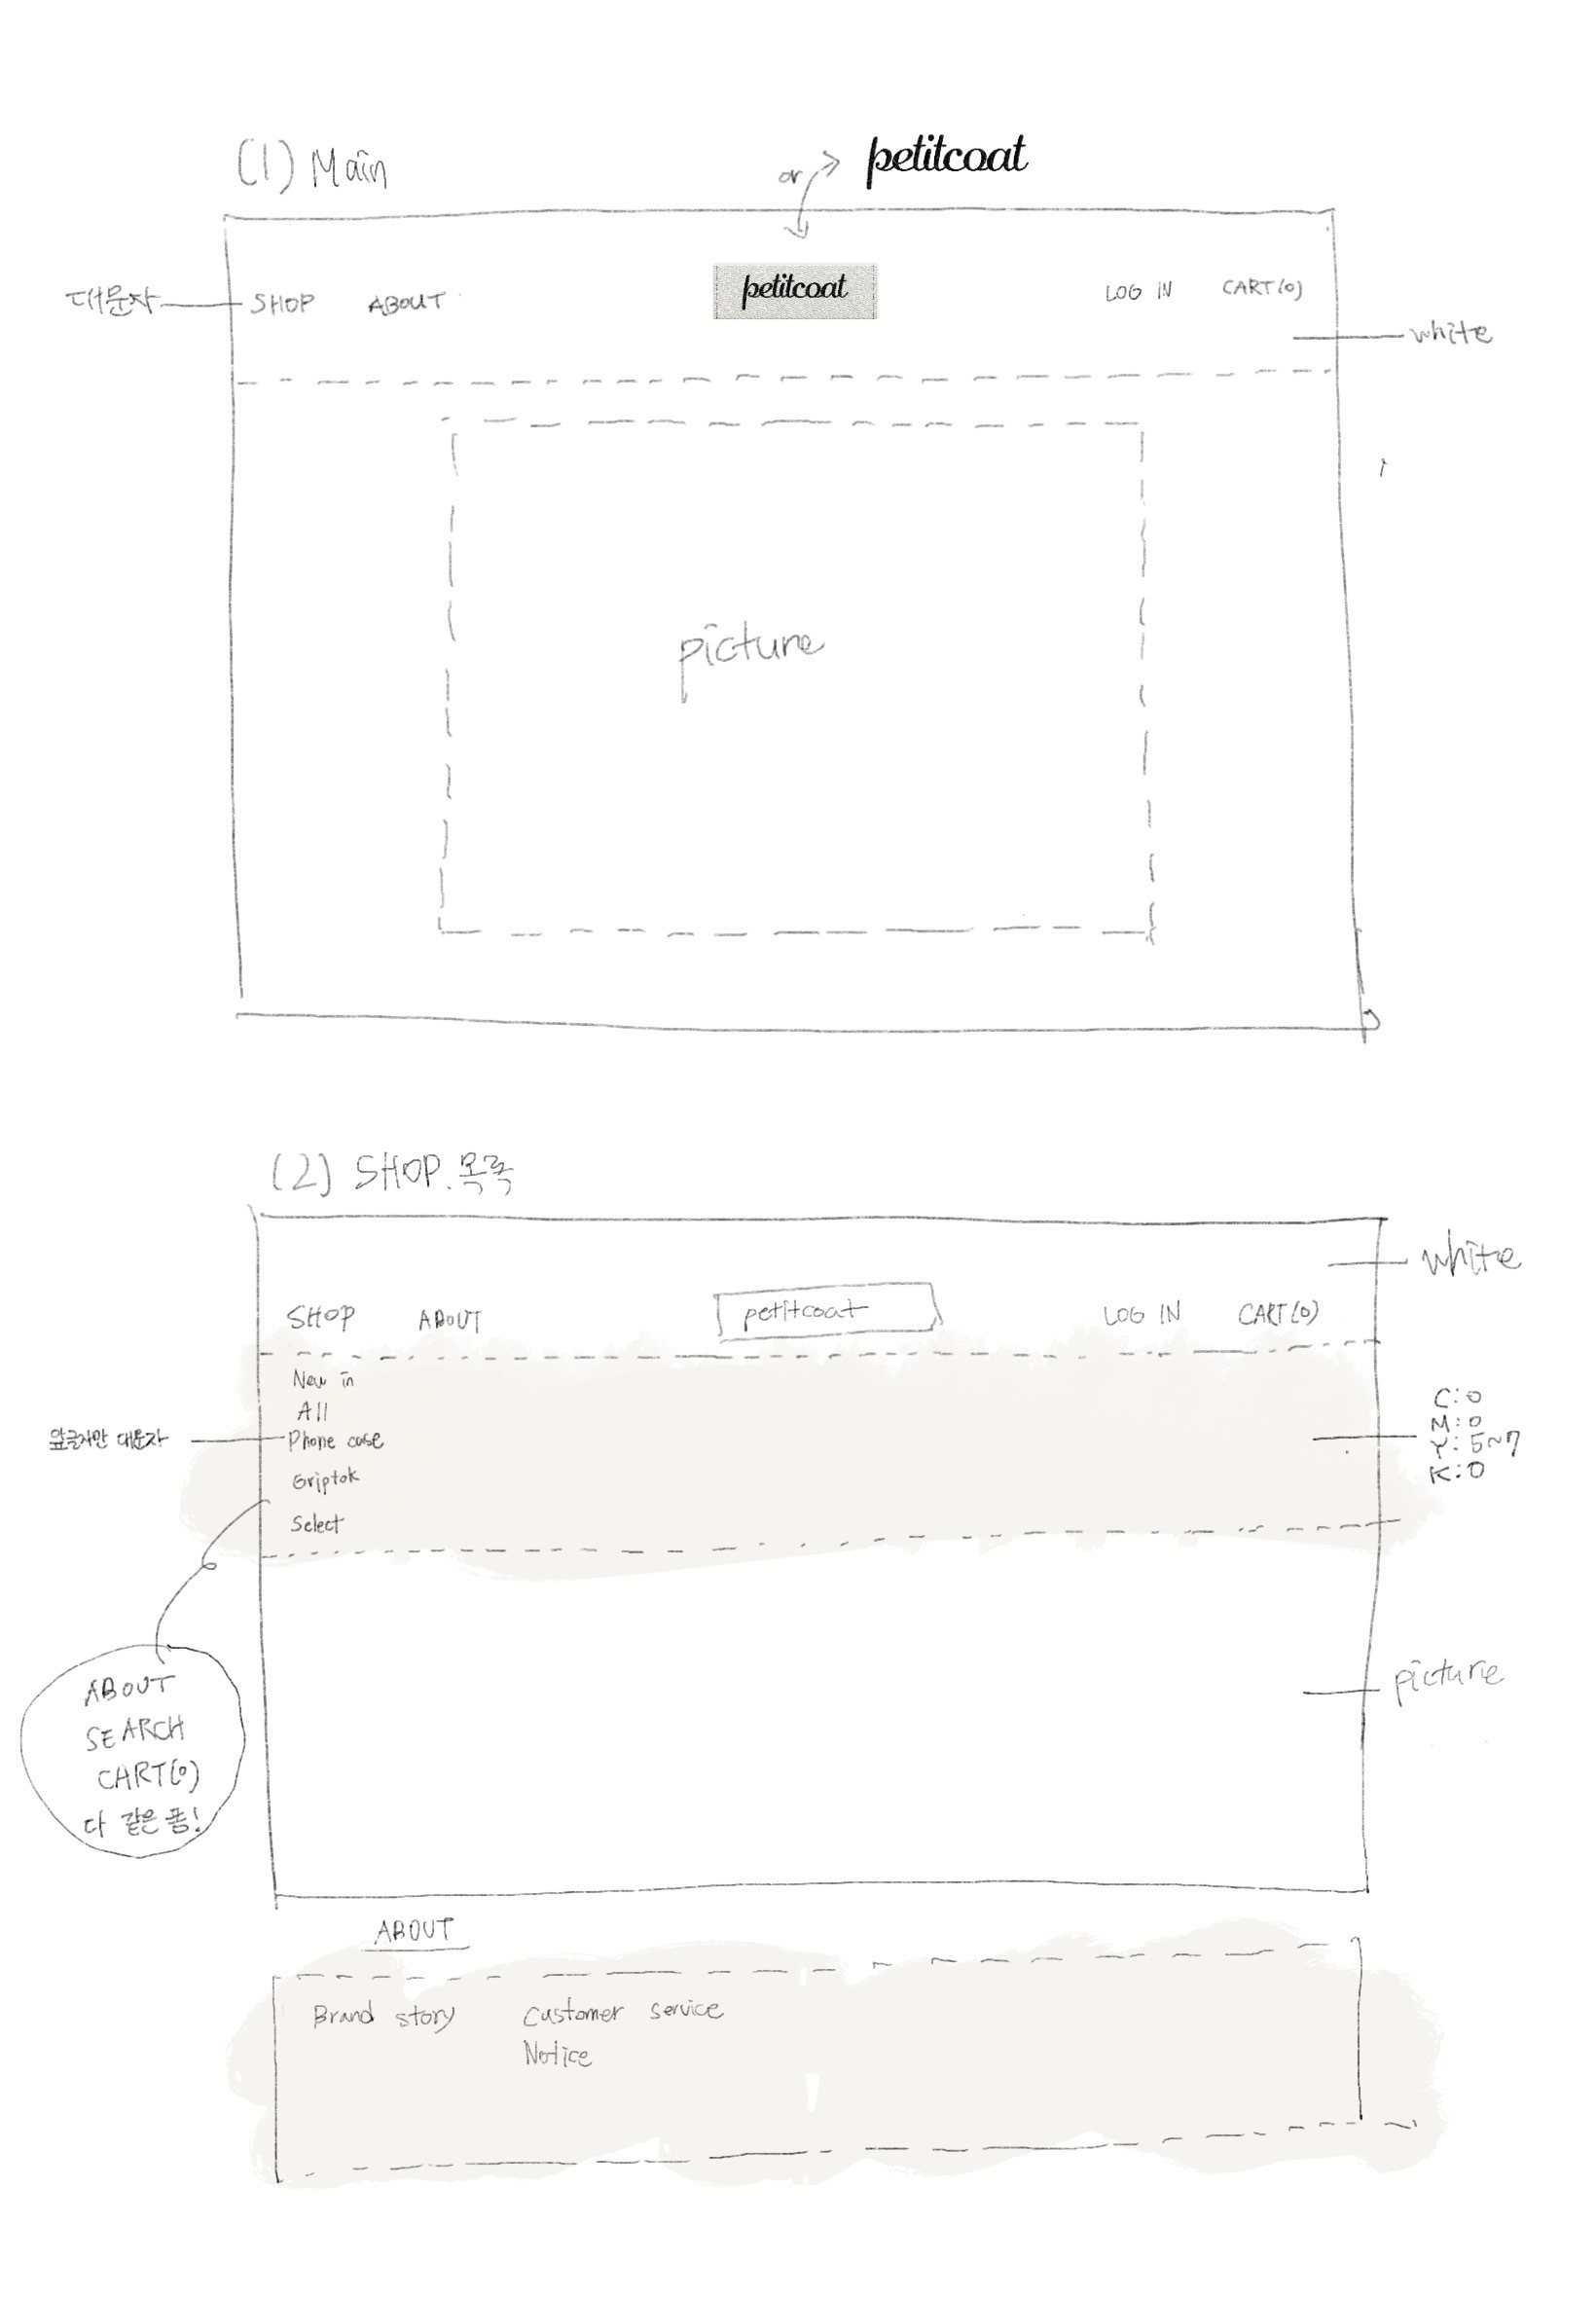 (1) Main
or
petitcoat
대문자
SHOP ABOUT petitcoat LOG IN CART(0)
white
picture
(2) SHOP.목록
white
SHOP ABOUT petitcoat LOG IN CART(0)
New in
All
앞글자만 대문자
Phone case
Griptok
Select
C:0
M:0
Y:5~7
K:0
ABOUT
SEARCH
CART(0)
다 같은 폼!
picture
ABOUT
Brand story Customer service
Notice